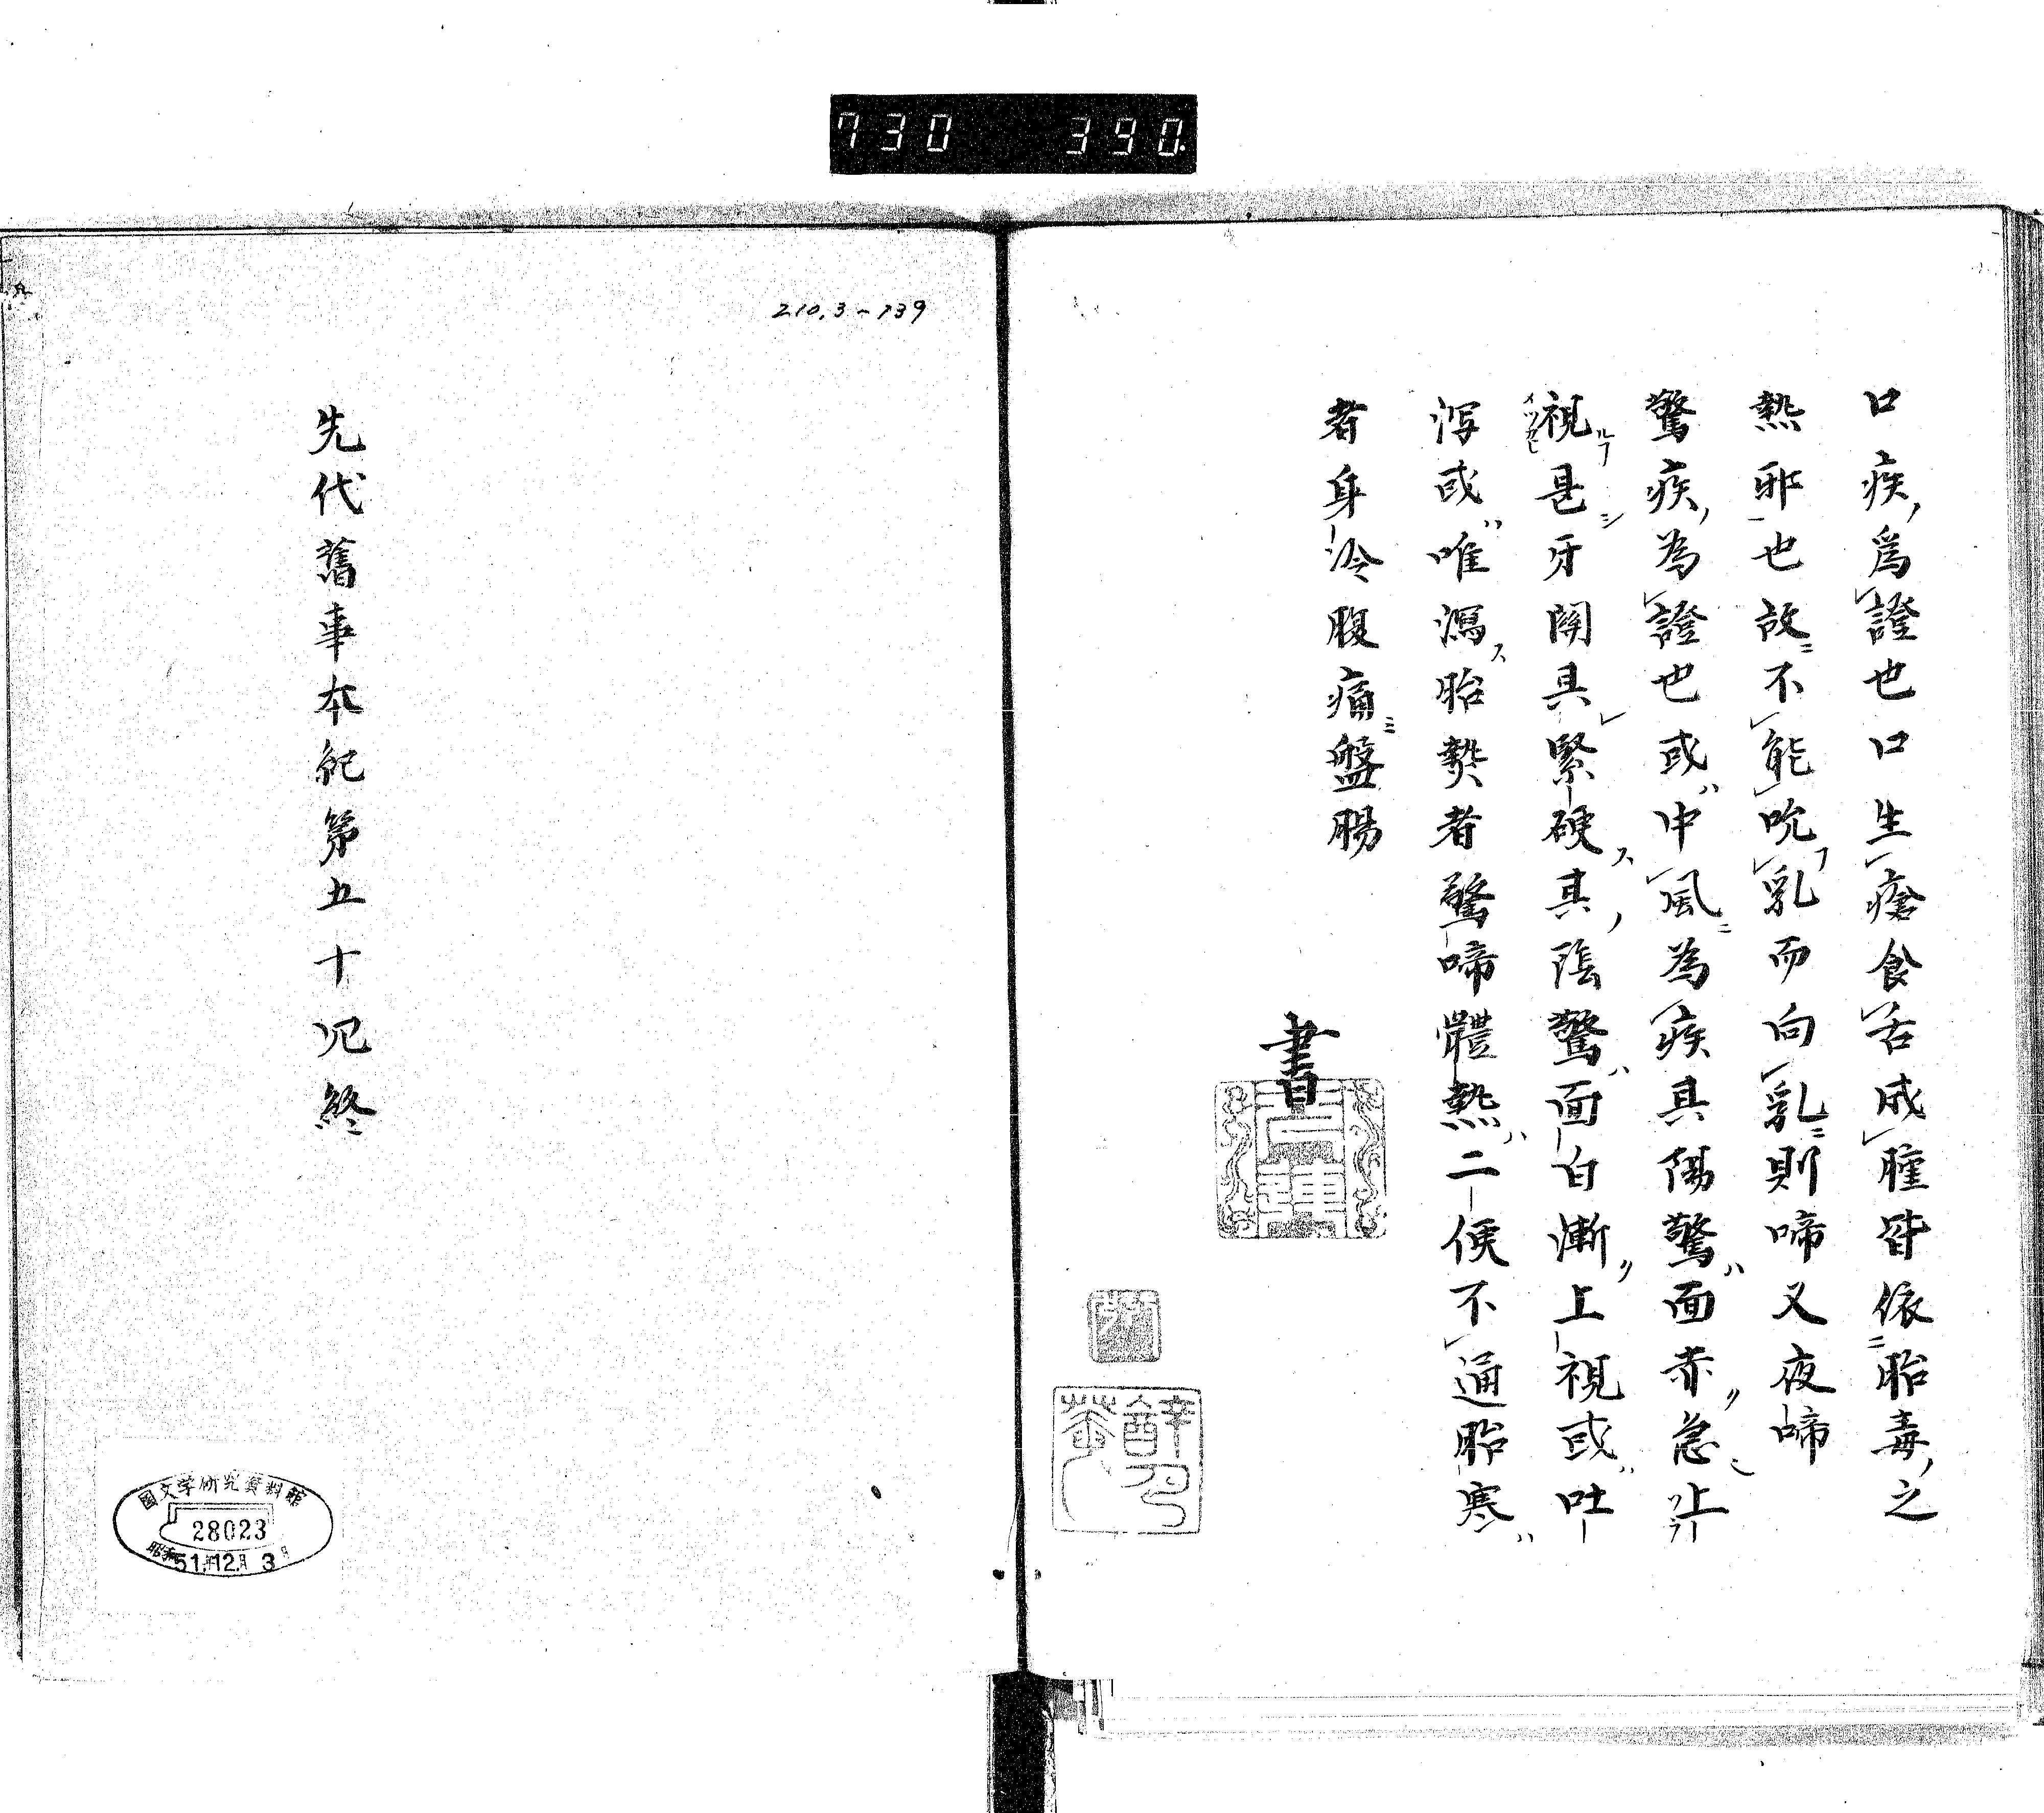 730 390
口疾爲證也口生瘡食舌成腫皆依胎毒之
熱邪也故不能吮乳而向乳則啼又夜啼
驚疾為證也或中風為疾其陽驚面赤急上
視甚牙関具緊硬其陰驚面白漸上視或吐
泻或唯瀉胎熱者驚啼體熱二便不通胎寒
者身冷腹痛盤腸
書
210.3-739
先代舊事本紀第五十四終
國文学研究資料館
28023
昭和51年12月3日